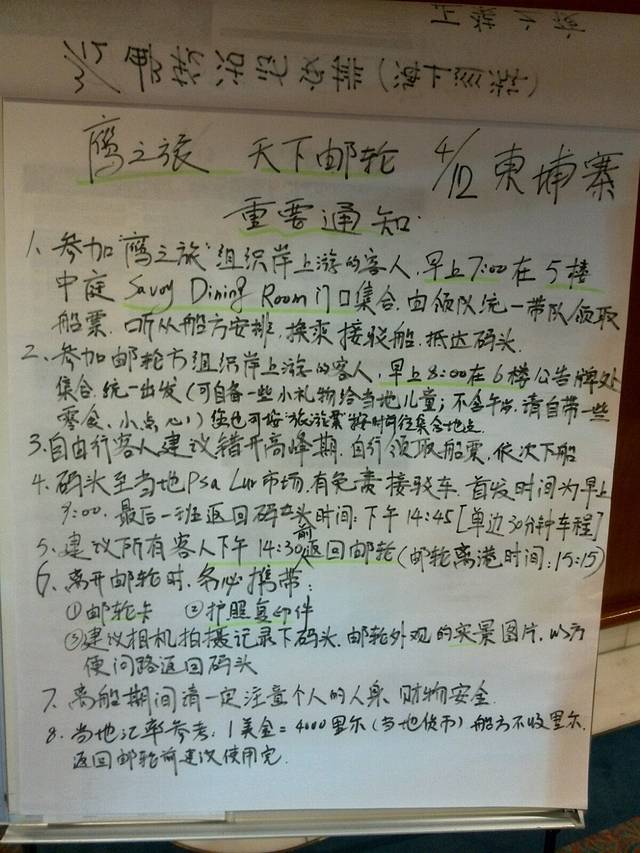 3/15 邮轮活动安排（海上巡游）
鹰之旅 天下邮轮 4/12 柬埔寨
重要通知
1、参加“鹰之旅”组织岸上游的客人，早上7:00在5楼
中庭 Savoy Dining Room门口集合，由领队统一带队领取
船票，听从船方安排，换乘接驳船，抵达码头.
2、参加邮轮方组织岸上游的客人，早上8:00在6楼公告牌处
集合，统一出发（可自备一些小礼物给当地儿童；不含午餐，请自带一些
零食、小点心）您也可按“旅游票”按时前往集合地点
3、自由行客人建议错开高峰期，自行领取船票，依次下船
4、码头至当地Psa Lur市场，有免费接驳车，首发时间为早上
9:00，最后一班返回码头时间：下午14:45[单边30分钟车程]
5、建议所有客人下午14:30前返回邮轮（邮轮离港时间：15:15）
6、离开邮轮时，务必携带：
①邮轮卡 ②护照复印件
③建议相机拍摄记录下码头，邮轮外观的实景图片，以方
便问路返回码头
7、离船期间请一定注意个人的人身、财物安全.
8、当地汇率参考：1美金=4000里尔（当地货币）船方不收里尔，
返回邮轮前建议使用完.